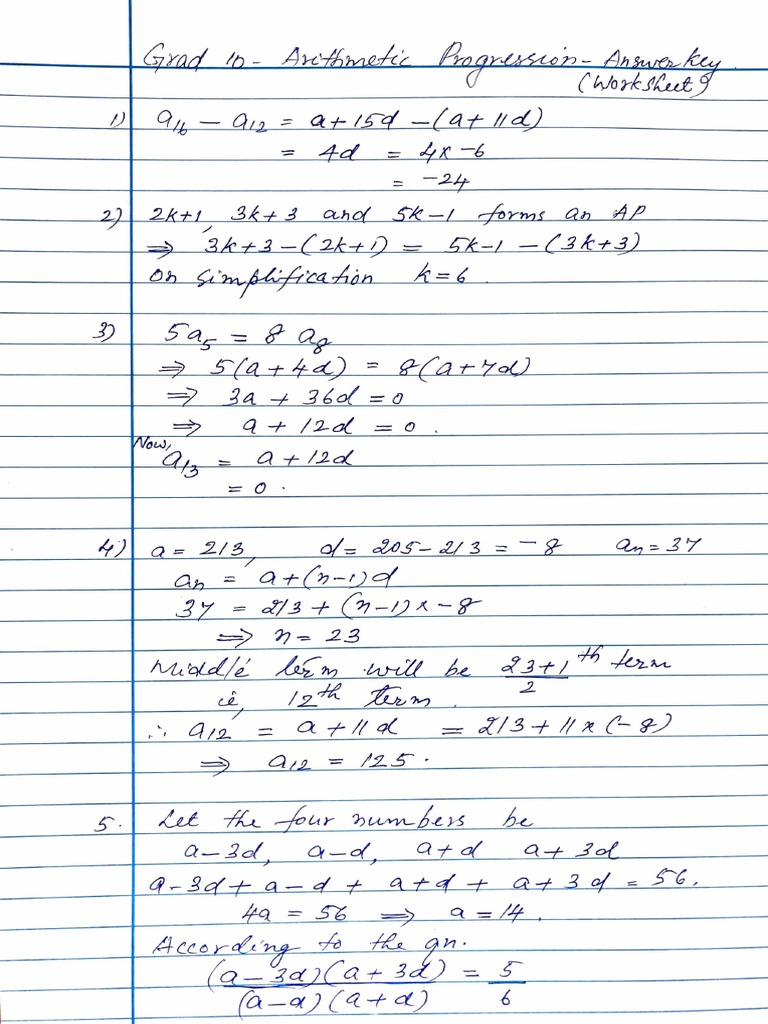 Grad 10 - Arithmetic Progression - Answer key
(Worksheet)
1) a₁₆ - a₁₂ = a+15d - (a+11d)
= 4d = 4x -6
= -24
2) 2k+1, 3k+3 and 5k-1 forms an AP
⇒ 3k+3-(2k+1) = 5k-1 - (3k+3)
on simplification k=6.
3) 5a₅ = 8 a₈
⇒ 5(a+4d) = 8(a+7d)
⇒ 3a + 36d = 0
⇒ a + 12d = 0.
Now,
a₁₃ = a+12d
= 0.
4) a = 213, d = 205-213 = -8 an = 37
an = a+(n-1)d
37 = 213 + (n-1)x -8
⇒ n = 23
Middle term will be (23+1)/2 th term
ie, 12th term.
∴ a₁₂ = a+11d = 213+11x(-8)
⇒ a₁₂ = 125.
5. Let the four numbers be
a-3d, a-d, a+d a+3d
a-3d + a-d + a+d + a+3d = 56.
4a = 56 ⇒ a = 14.
According to the qn.
(a-3d)(a+3d) = 5
(a-d)(a+d) 6